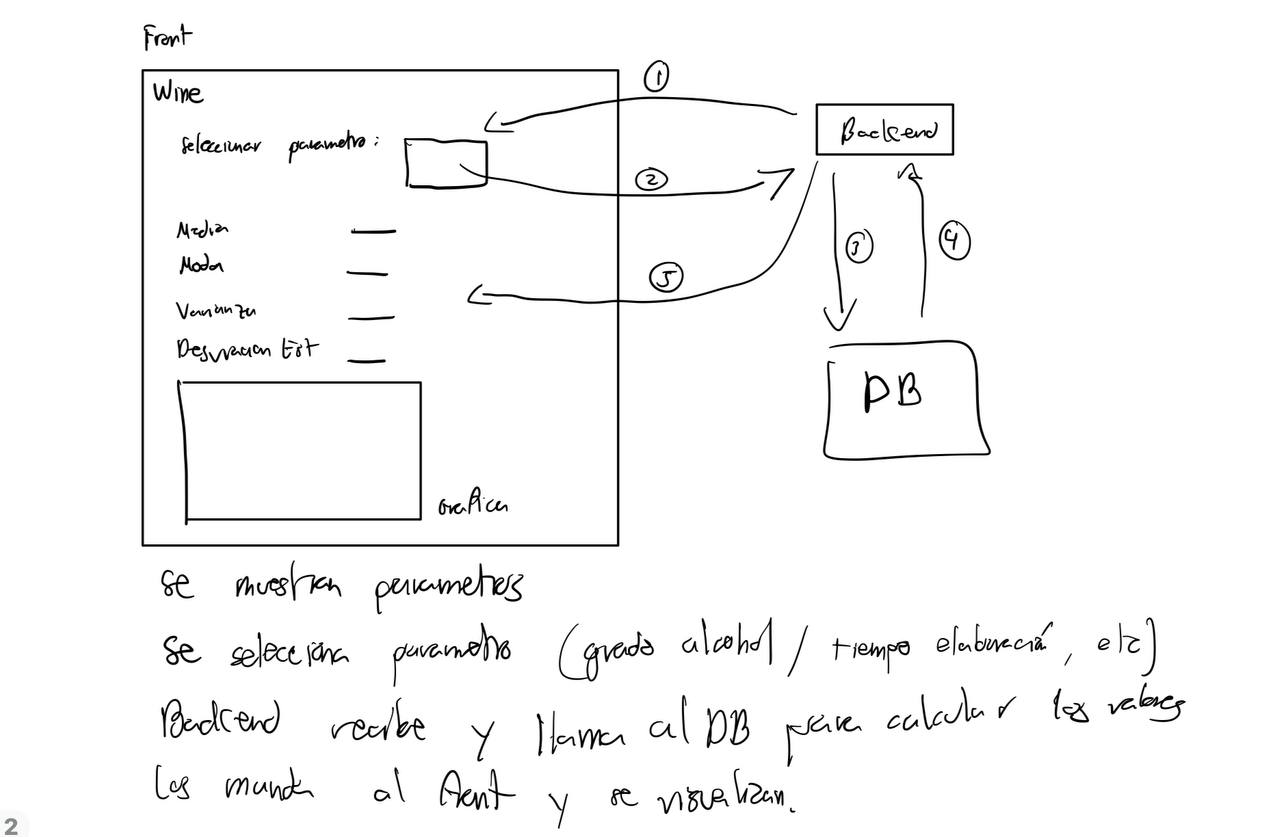 Front
Wine
Seleccionar parametro:
1
Backend
2
Media
Moda
3
4
5
Varianza
Desviacion Est
DB
Grafica
Se muestran parametros
Se selecciona parametro (grado alcohol / tiempo elaboración, etc)
Backend recibe y llama al DB para calcular los valores
Los manda al front y se visualizan.
2